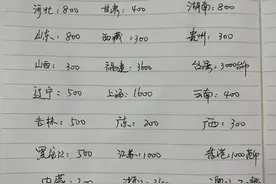 河北：800 甘肃：400 湖南：800
山东：800 西藏：300 贵州：300
山西：300 福建：3600 台湾：3000
辽宁：500 上海：1600 云南：400
吉林：500 广东：200 广西：300
黑龙江：500 江苏：1000 香港：1000
内蒙：